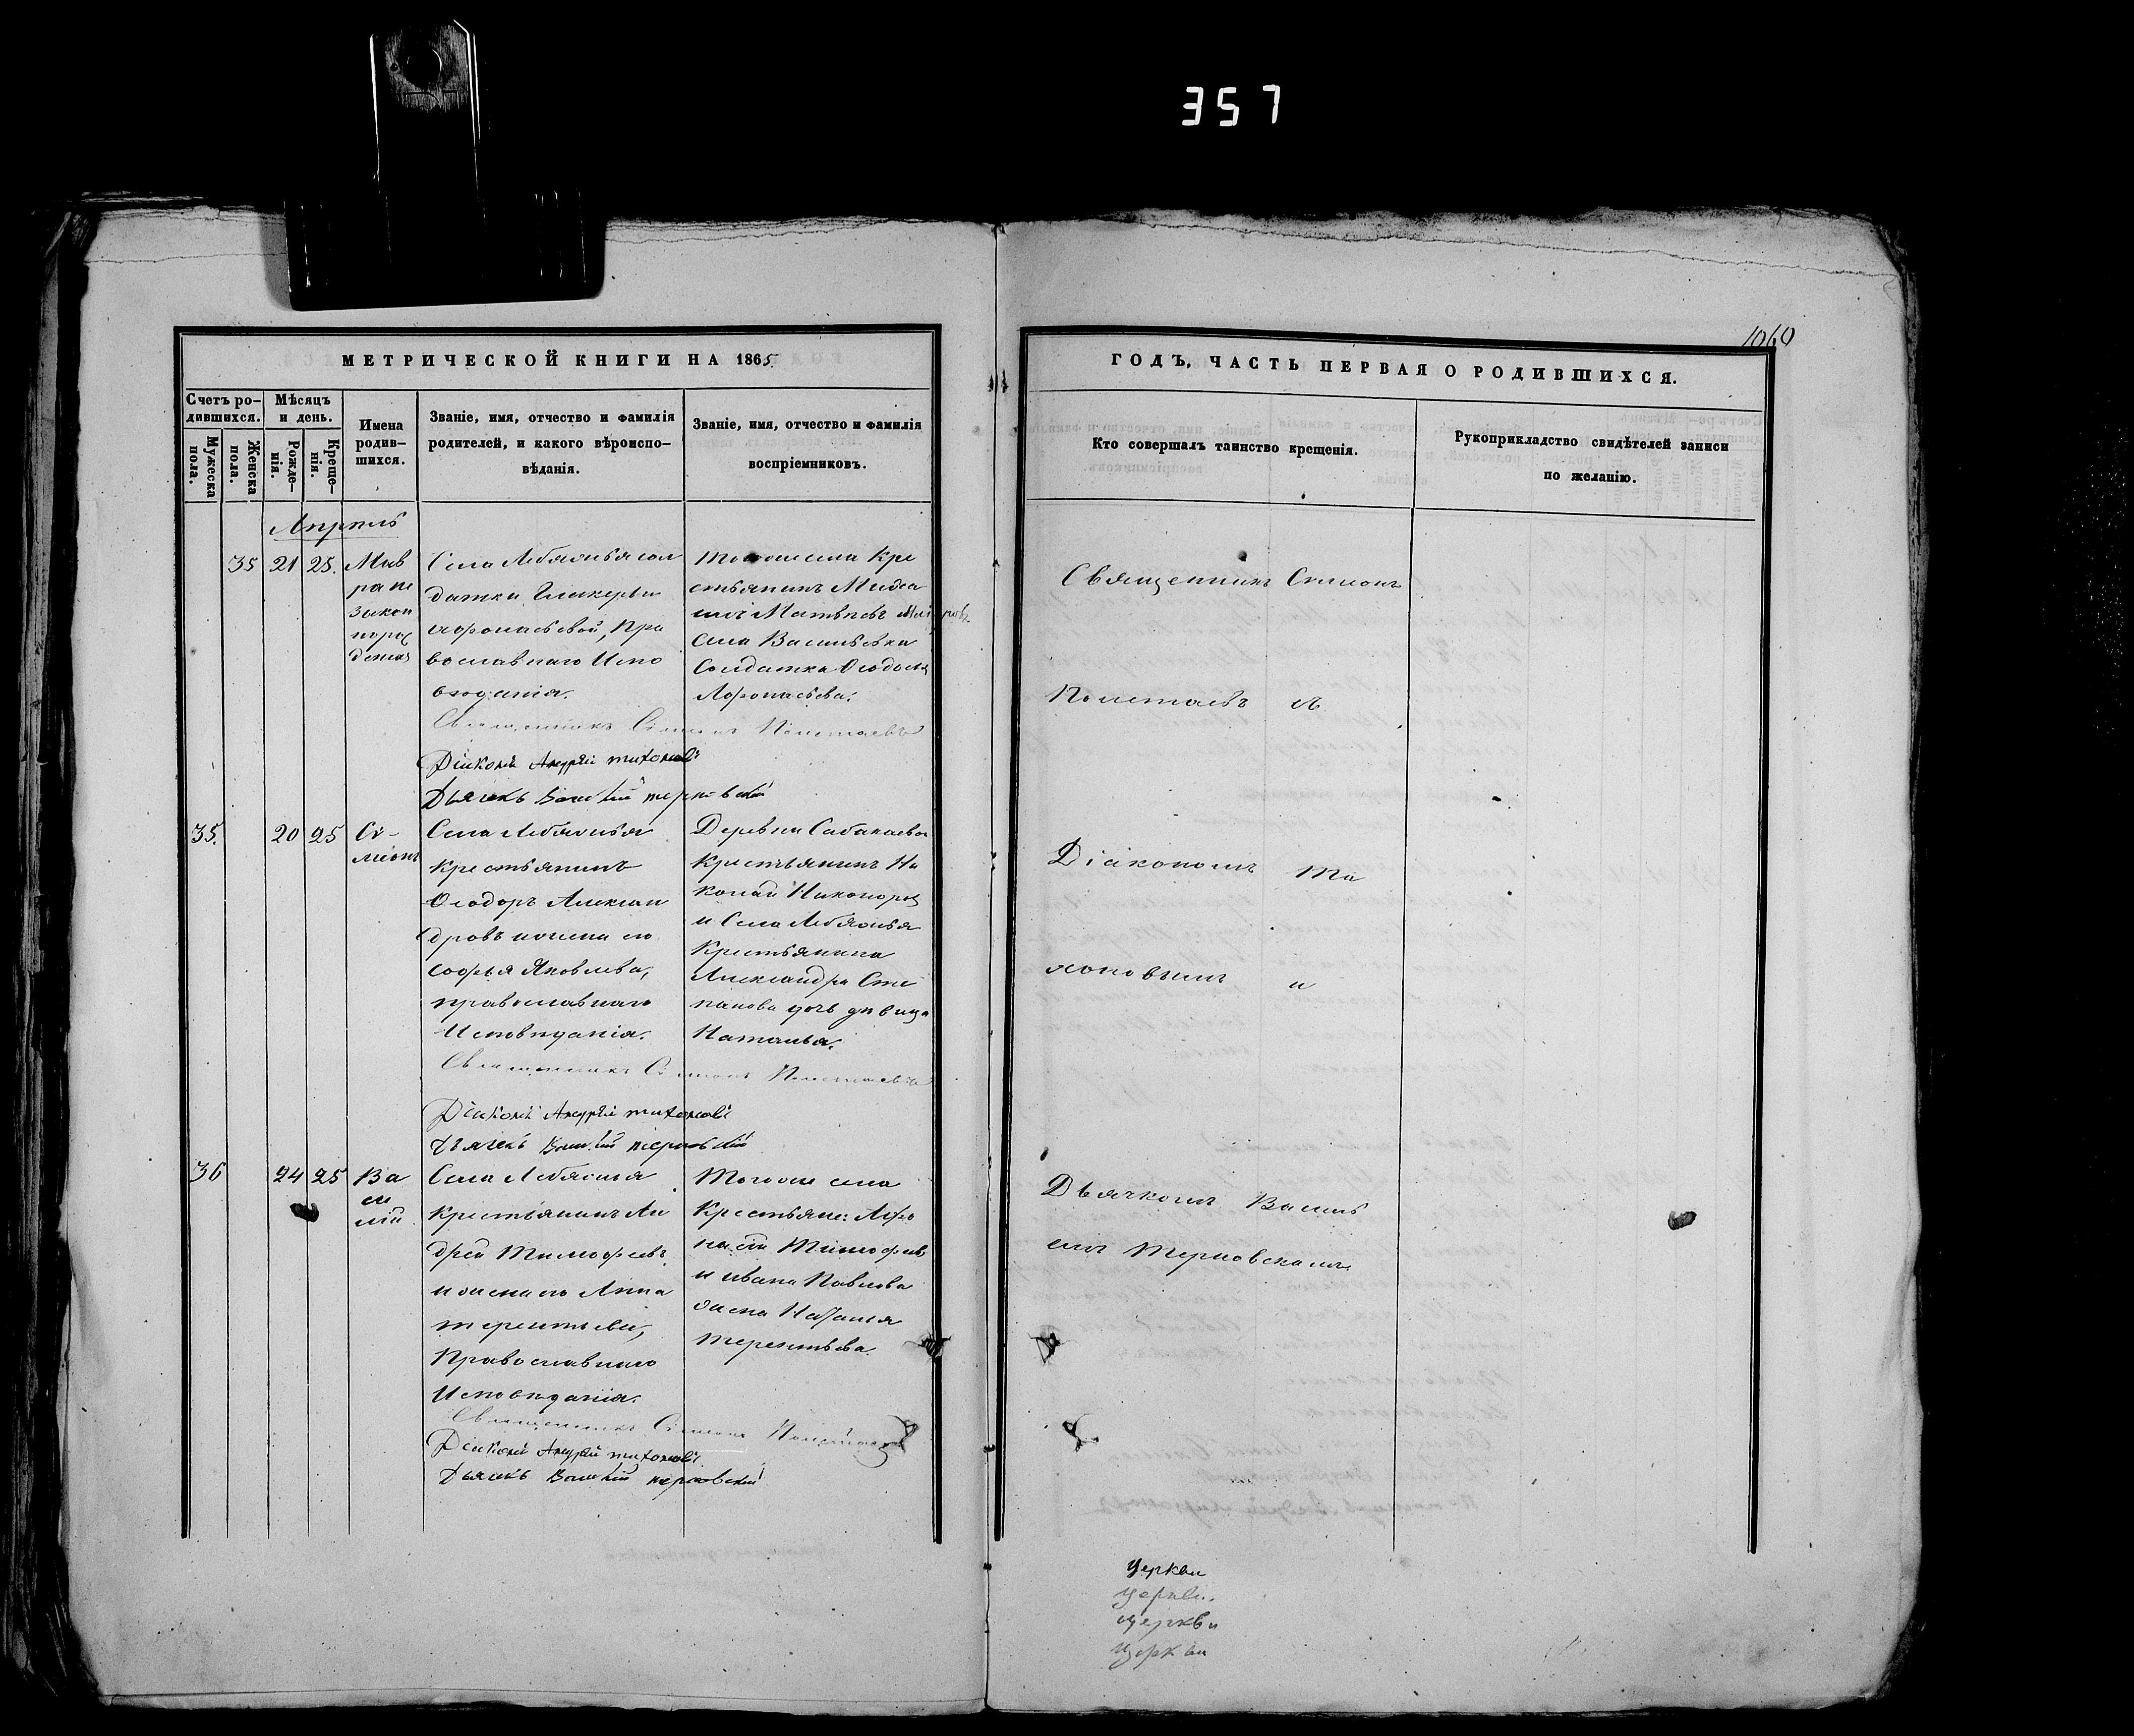 357
1060
МЕТРИЧЕСКОЙ КНИГИ НА 1865.
Счетъ ро-
дившихся.
Мужеска
пола.
Женска
пола.
Мѣсяцъ
и день.
Рожде-
нія.
Креще-
нія.
Имена
родив-
шихся.
Званіе, имя, отчество и фамилія
родителей, и какого вѣроиспо-
вѣданія.
Званіе, имя, отчество и фамилія
воспріемниковъ.
Апрѣль
35 21 25.
Мав
ра не
закон
норож
денная
Села Лебяжья сол
датки Гликерьи
Афонасьевой, Пра
вославнаго Испо
вѣданія.
Тогоже села Кре
стьянинъ Михаи
илъ Матвѣевъ
села Васильевки
Солдатка Ѳеодосья
Афонасьева.
Священникъ Симеонъ Полетаевъ
Діаконъ Андрей Тихоновъ
Дьячекъ Василій Терновскій
35. 20 25
Си-
меонъ
Села Лебяжья
Крестьянинъ
Ѳеодоръ Алексан
дровъ и жена его
Софья Яковлева,
православнаго
Исповѣданія.
Деревни Сабакаева
Крестьянинъ Ни
колай Никоноровъ
и Села Лебяжья
Крестьянина
Александра Сте
панова дочь дѣвица
Наталья.
Священникъ Симеонъ Полетаевъ
Діаконъ Андрей Тихоновъ
Дьячекъ Василій Терновскій
36 24 25
Ва
си
лій
Села Лебяжья
Крестьянинъ Ан
дрей Тимофеевъ
и жена его Анна
Терентьева,
Православнаго
Исповѣданія.
Тогоже села
Крестьяне: Афо
насій Тимофеевъ
и Ивана Павлова
жена Наталья
Терентьева.
Священникъ Симеонъ Полетаевъ
Діаконъ Андрей Тихоновъ
Дьячекъ Василій Терновскій
ГОДЪ, ЧАСТЬ ПЕРВАЯ О РОДИВШИХСЯ.
Кто совершалъ таинство крещенія.
Рукоприкладство свидѣтелей записи
по желанію.
Священникъ Симеонъ
Полетаевъ съ
Діакономъ Ти
хоновымъ и
Дьячкомъ Василь
емъ Терновскимъ.
Церкви
Церкви.
Церкви
Церкви